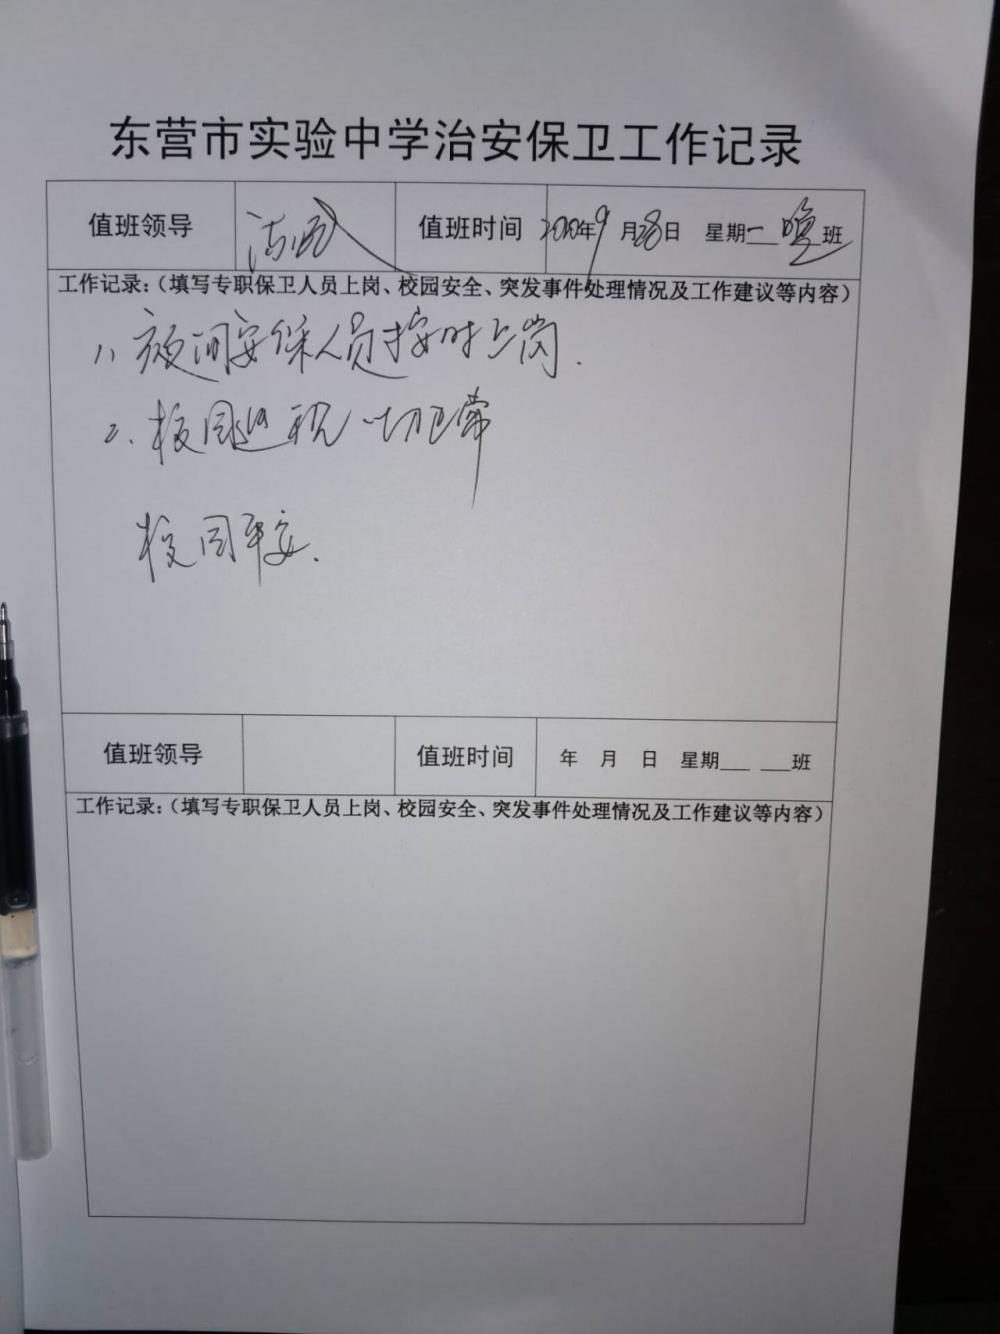 东营市实验中学治安保卫工作记录
值班领导 值班时间 2020年9月28日 星期一 晚班
工作记录：（填写专职保卫人员上岗、校园安全、突发事件处理情况及工作建议等内容）
1、夜间安保人员按时上岗.
2、校园巡视一切正常
校园平安.
值班领导 值班时间 年 月 日 星期___ ___班
工作记录：（填写专职保卫人员上岗、校园安全、突发事件处理情况及工作建议等内容）